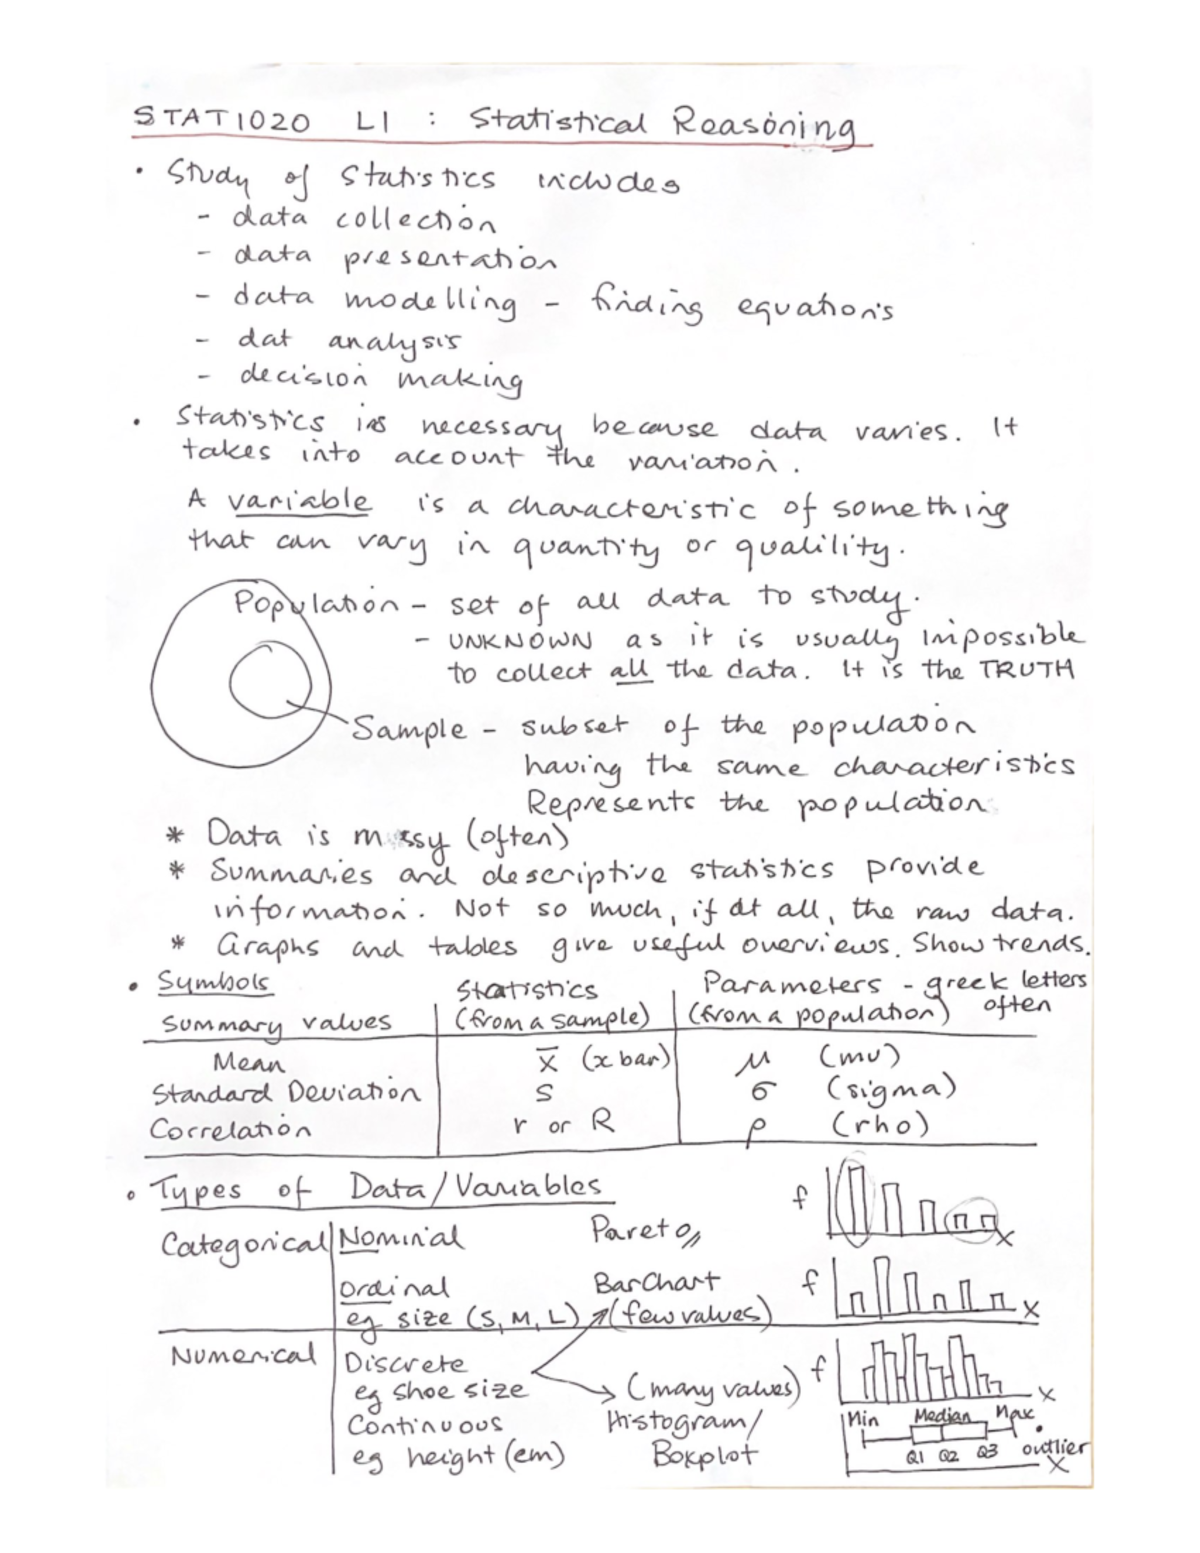 STAT1020 L1 : Statistical Reasoning
• Study of Statistics includes
- data collection
- data presentation
- data modelling - finding equations
- dat analysis
- decision making
• Statistics is necessary because data varies. It
takes into account the variation.
A variable is a characteristic of something
that can vary in quantity or qualility.
Population - set of all data to study.
- UNKNOWN as it is usually impossible
to collect all the data. It is the TRUTH
Sample - subset of the population
having the same characteristics
Represents the population
* Data is messy (often)
* Summaries and descriptive statistics provide
information. Not so much, if at all, the raw data.
* Graphs and tables give useful overviews. Show trends.
• Symbols Statistics Parameters - greek letters
Summary values (from a sample) (from a population) often
Mean x̄ (x bar) μ (mu)
Standard Deviation S σ (sigma)
Correlation r or R ρ (rho)
• Types of Data/Variables f x
Categorical Nominal Pareto
Ordinal BarChart f x
eg size (S, M, L) (few values)
Numerical Discrete f x
eg shoe size (many values)
Continuous Histogram/ Min Median Max
eg height (em) Boxplot Q1 Q2 Q3 outlier
x